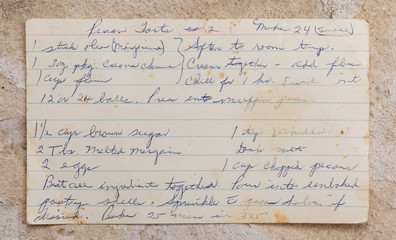 Pecan Torte Makes 24 (small)
1 stick oleo (Margarine) Soften to room temp.
1 3 oz pkg cream cheese Cream together - add flour
1 cup flour Chill for 1 hr. into
12 or 24 balls. Press into muffin pans
1 1/2 cup brown sugar 1 tsp Vanilla
2 Tbs. Melted Margarine Dash salt
2 eggs 1 cup chopped pecans
Beat all ingredients together. Pour into unbaked
pastry shells. Sprinkle to if
desired. Bake 25 min in